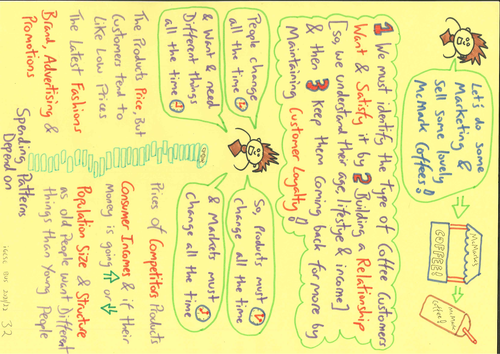 Let's do some
Marketing &
Sell some lovely
McMark Coffees!
McMark
COFFEE!
McMark
Coffee!
1 We must identify the type of Coffee Customers
Want & Satisfy it by 2 Building a Relationship
[so, we understand their age, lifestyle & income]
& then 3 Keep them coming back for more by
Maintaining Customer Loyalty!
People change
all the time
& Want & need
Different things
all the time
So, Products must
change all the time
& Markets must
Change all the time
The Products Price, But
Customers tend to
Like Low Prices
The Latest Fashions
Brand, Advertising &
Promotions
Spending Patterns
Depend on
Prices of Competitors Products
Consumer Incomes & if their
Money is going ↑ or ↓
Population Size & Structure
as old People want Different
things than Young People
32